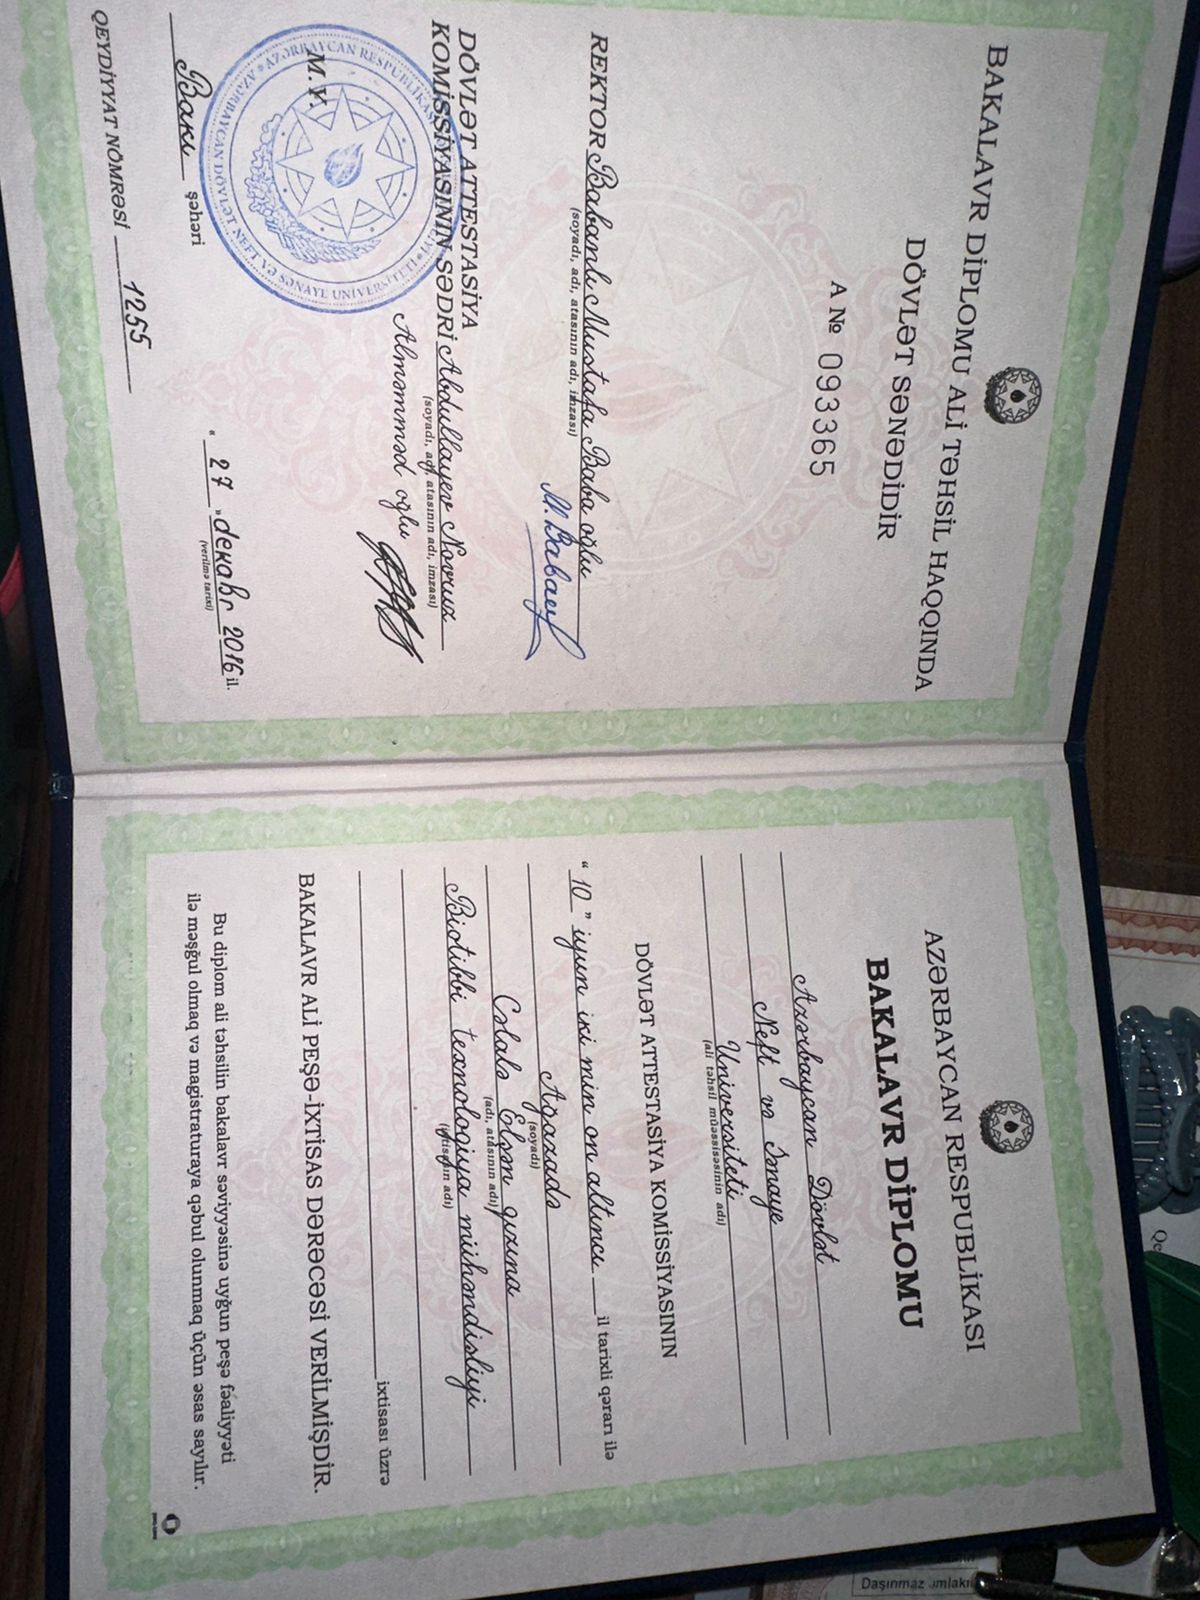 BAKALAVR DİPLOMU ALİ TƏHSİL HAQQINDA
DÖVLƏT SƏNƏDİDİR
A № 093365
REKTOR Babanlı Mustafa Baba oğlu
(soyadı, adı, atasının adı, imzası)
M. Babanlı
DÖVLƏT ATTESTASİYA
KOMİSSİYASININ SƏDRİ Abdullayev Novruz
(soyadı, adı, atasının adı, imzası)
Alməmməd oğlu
M.Y.
AZƏRBAYCAN RESPUBLİKASI
AZƏRBAYCAN DÖVLƏT NEFT VƏ SƏNAYE UNİVERSİTETİ
Bakı şəhəri
« 27 » dekabr 2016 il.
(verilmə tarixi)
QEYDİYYAT NÖMRƏSİ 1255
AZƏRBAYCAN RESPUBLİKASI
BAKALAVR DİPLOMU
Azərbaycan Dövlət
Neft və Sənaye
Universiteti
(ali təhsil müəssisəsinin adı)
DÖVLƏT ATTESTASİYA KOMİSSİYASININ
“ 10 ” iyun iki min on altıncı il tarixli qərarı ilə
Ağazadə
(soyadı)
Cəlalə Elşən qızına
(adı, atasının adı)
Biotibbi texnologiya mühəndisliyi
(ixtisasın adı)
ixtisası üzrə
BAKALAVR ALİ PEŞƏ-İXTİSAS DƏRƏCƏSİ VERİLMİŞDİR.
Bu diplom ali təhsilin bakalavr səviyyəsinə uyğun peşə fəaliyyəti
ilə məşğul olmaq və magistraturaya qəbul olunmaq üçün əsas sayılır.
Qe
Daşınmaz əmlakı